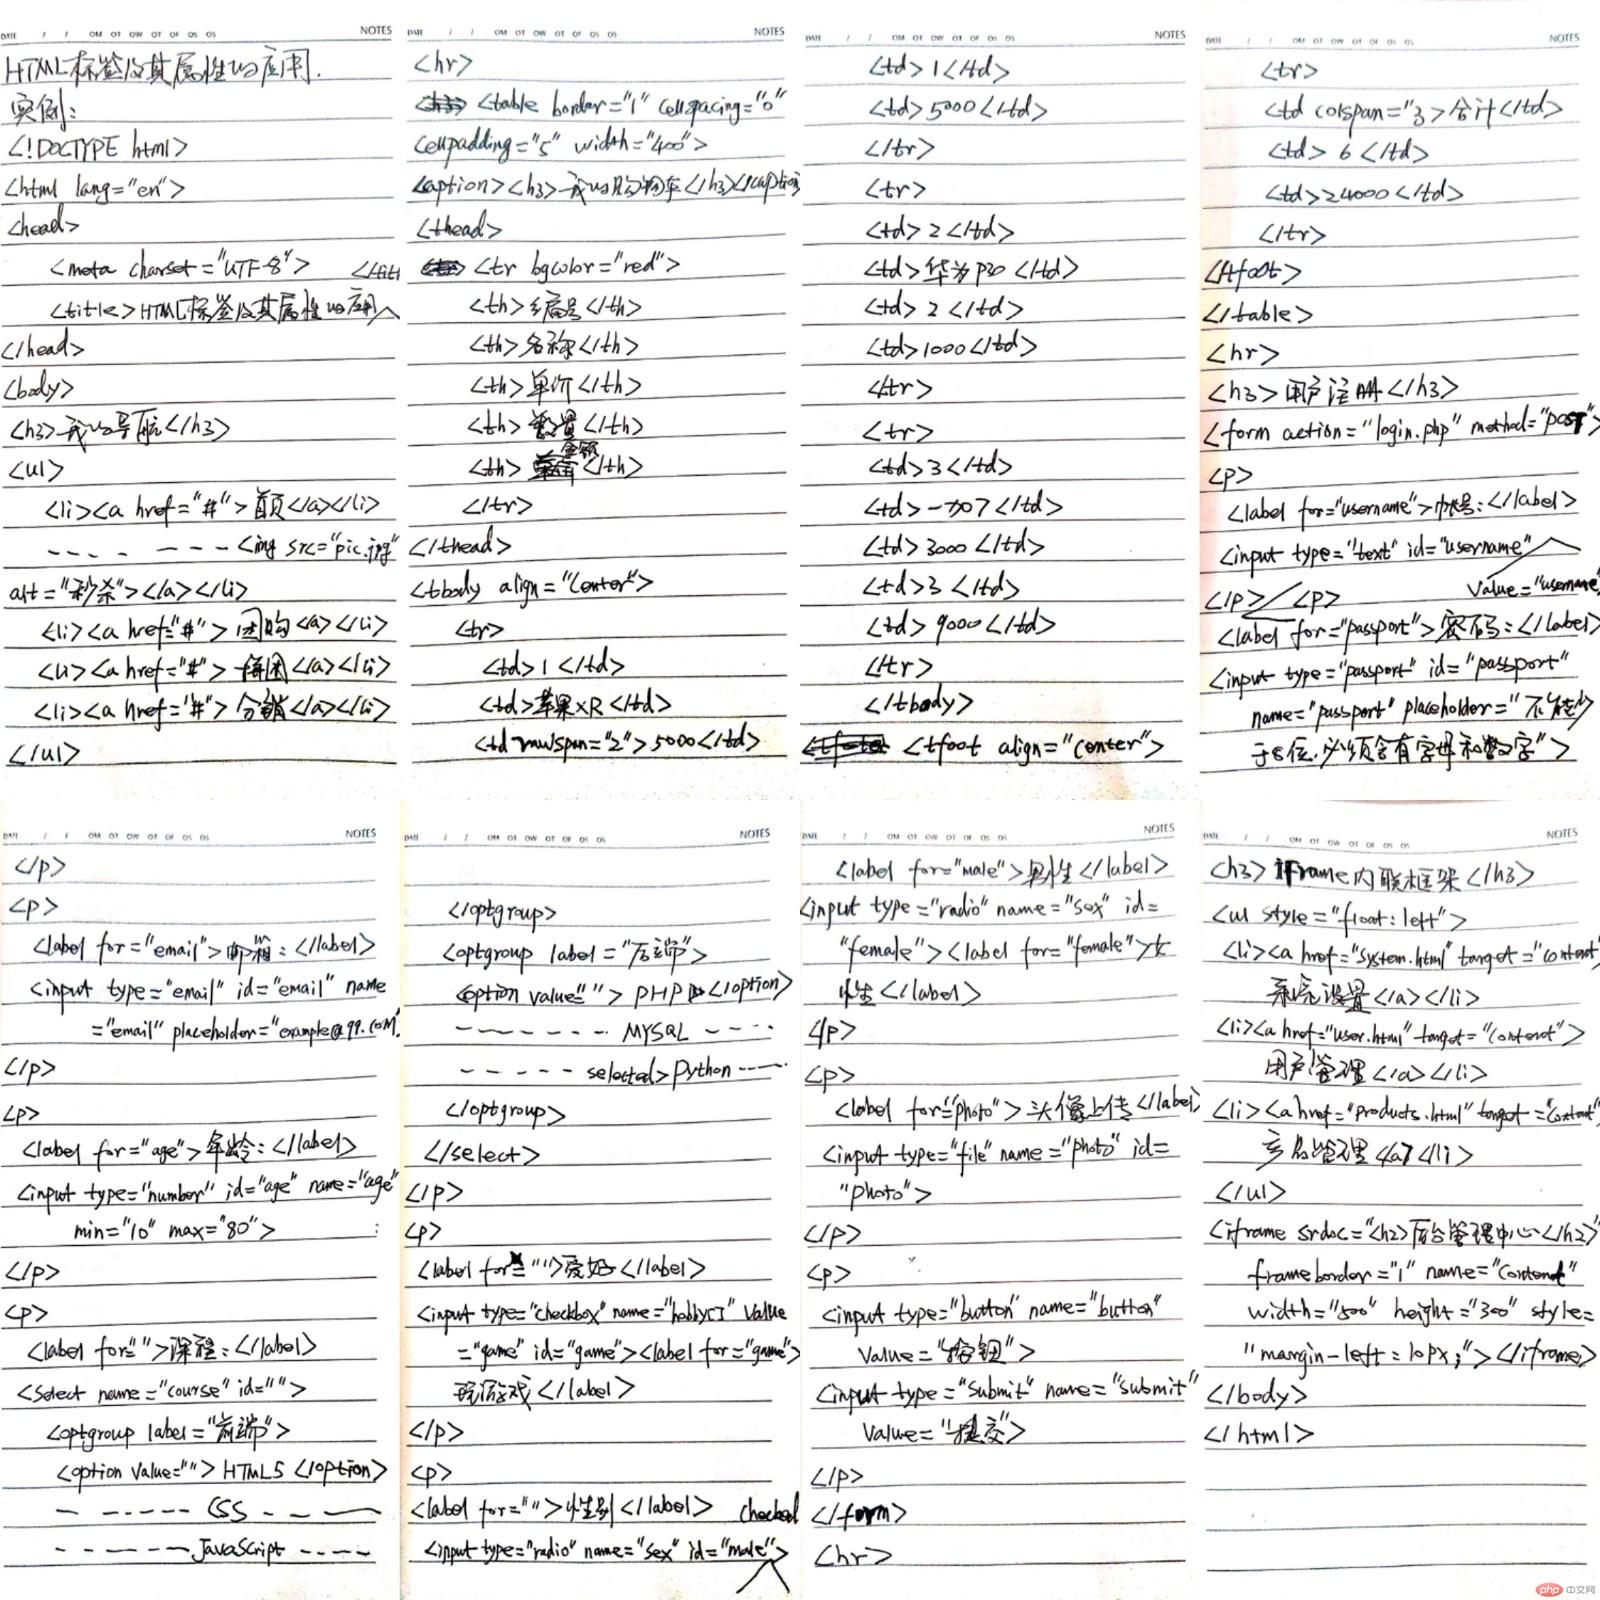 DATE / / OM OT OW OT OF OS OS NOTES
HTML标签及其属性的应用.
实例:
<!DOCTYPE html>
<html lang="en">
<head>
<meta charset="UTF-8">
<title>HTML标签及其属性的应用</tit
</head>
<body>
<h3>我的导航</h3>
<ul>
<li><a href="#">首页</a></li>
---- ---<img src="pic.jpg"
alt="秒杀"></a></li>
<li><a href="#">团购<a></li>
<li><a href="#">拼团</a></li>
<li><a href="#">分销</a></li>
</ul>
DATE / / OM OT OW OT OF OS OS NOTES
<hr>
<table border="1" cellspacing="0"
cellpadding="5" width="400">
<caption><h3>我的购物车</h3></caption>
<thead>
<tr bgcolor="red">
<th>编号</th>
<th>名称</th>
<th>单价</th>
<th>数量</th>
<th>金额</th>
</tr>
</thead>
<tbody align="center">
<tr>
<td>1</td>
<td>苹果XR</td>
<td rowspan="2">5000</td>
DATE / / OM OT OW OT OF OS OS NOTES
<td>1</td>
<td>5000</td>
</tr>
<tr>
<td>2</td>
<td>华为P30</td>
<td>2</td>
<td>1000</td>
</tr>
<tr>
<td>3</td>
<td>一加7</td>
<td>3000</td>
<td>3</td>
<td>9000</td>
</tr>
</tbody>
<tfoot align="center">
DATE / / OM OT OW OT OF OS OS NOTES
<tr>
<td colspan="3>合计</td>
<td>6</td>
<td>24000</td>
</tr>
</tfoot>
</table>
<hr>
<h3>用户注册</h3>
<form action="login.php" method="post">
<p>
<label for="username">帐号:</label>
<input type="text" id="username"
value="username
</p> <p>
<label for="passport">密码:</label>
<input type="passport" id="passport"
name="passport" placeholder="不能少
于8位,必须含有字母和数字">
DATE / / OM OT OW OT OF OS OS NOTES
</p>
<p>
<label for="email">邮箱:</label>
<input type="email" id="email" name
="email" placeholder="example@99.com"
</p>
<p>
<label for="age">年龄:</label>
<input type="number" id="age" name="age"
min="10" max="80">
</p>
<p>
<label for="">课程:</label>
<select name="course" id="">
<optgroup label="前端">
<option value="">HTML5</option>
------ CSS ----
------ JavaScript ----
DATE / / OM OT OW OT OF OS OS NOTES
</optgroup>
<optgroup label="后端">
<option value="">PHP</option>
------- MYSQL ----
----- selected>Python ----
</optgroup>
</select>
</p>
<p>
<label for="">爱好</label>
<input type="checkbox" name="hobby[]" value
="game" id="game"><label for="game">
玩游戏</label>
</p>
<p>
<label for="">性别</label> checked
<input type="radio" name="sex" id="male">
DATE / / OM OT OW OT OF OS OS NOTES
<label for="male">男性</label>
<input type="radio" name="sex" id=
"female"><label for="female">女
性</label>
</p>
<p>
<label for="photo">头像上传</label>
<input type="file" name="photo" id=
"photo">
</p>
<p>
<input type="button" name="button"
value="按钮">
<input type="submit" name="submit"
value="提交">
</p>
</form>
<hr>
DATE / / OM OT OW OT OF OS OS NOTES
<h3>iframe内联框架</h3>
<ul style="float:left">
<li><a href="system.html" target="content"
系统设置</a></li>
<li><a href="user.html" target="content">
用户管理</a></li>
<li><a href="products.html" target="content"
产品管理</a></li>
</ul>
<iframe srdoc="<h2>后台管理中心</h2>"
frameborder="1" name="content"
width="500" height="300" style=
"margin-left:10px;"></iframe>
</body>
</html>
php 中文网